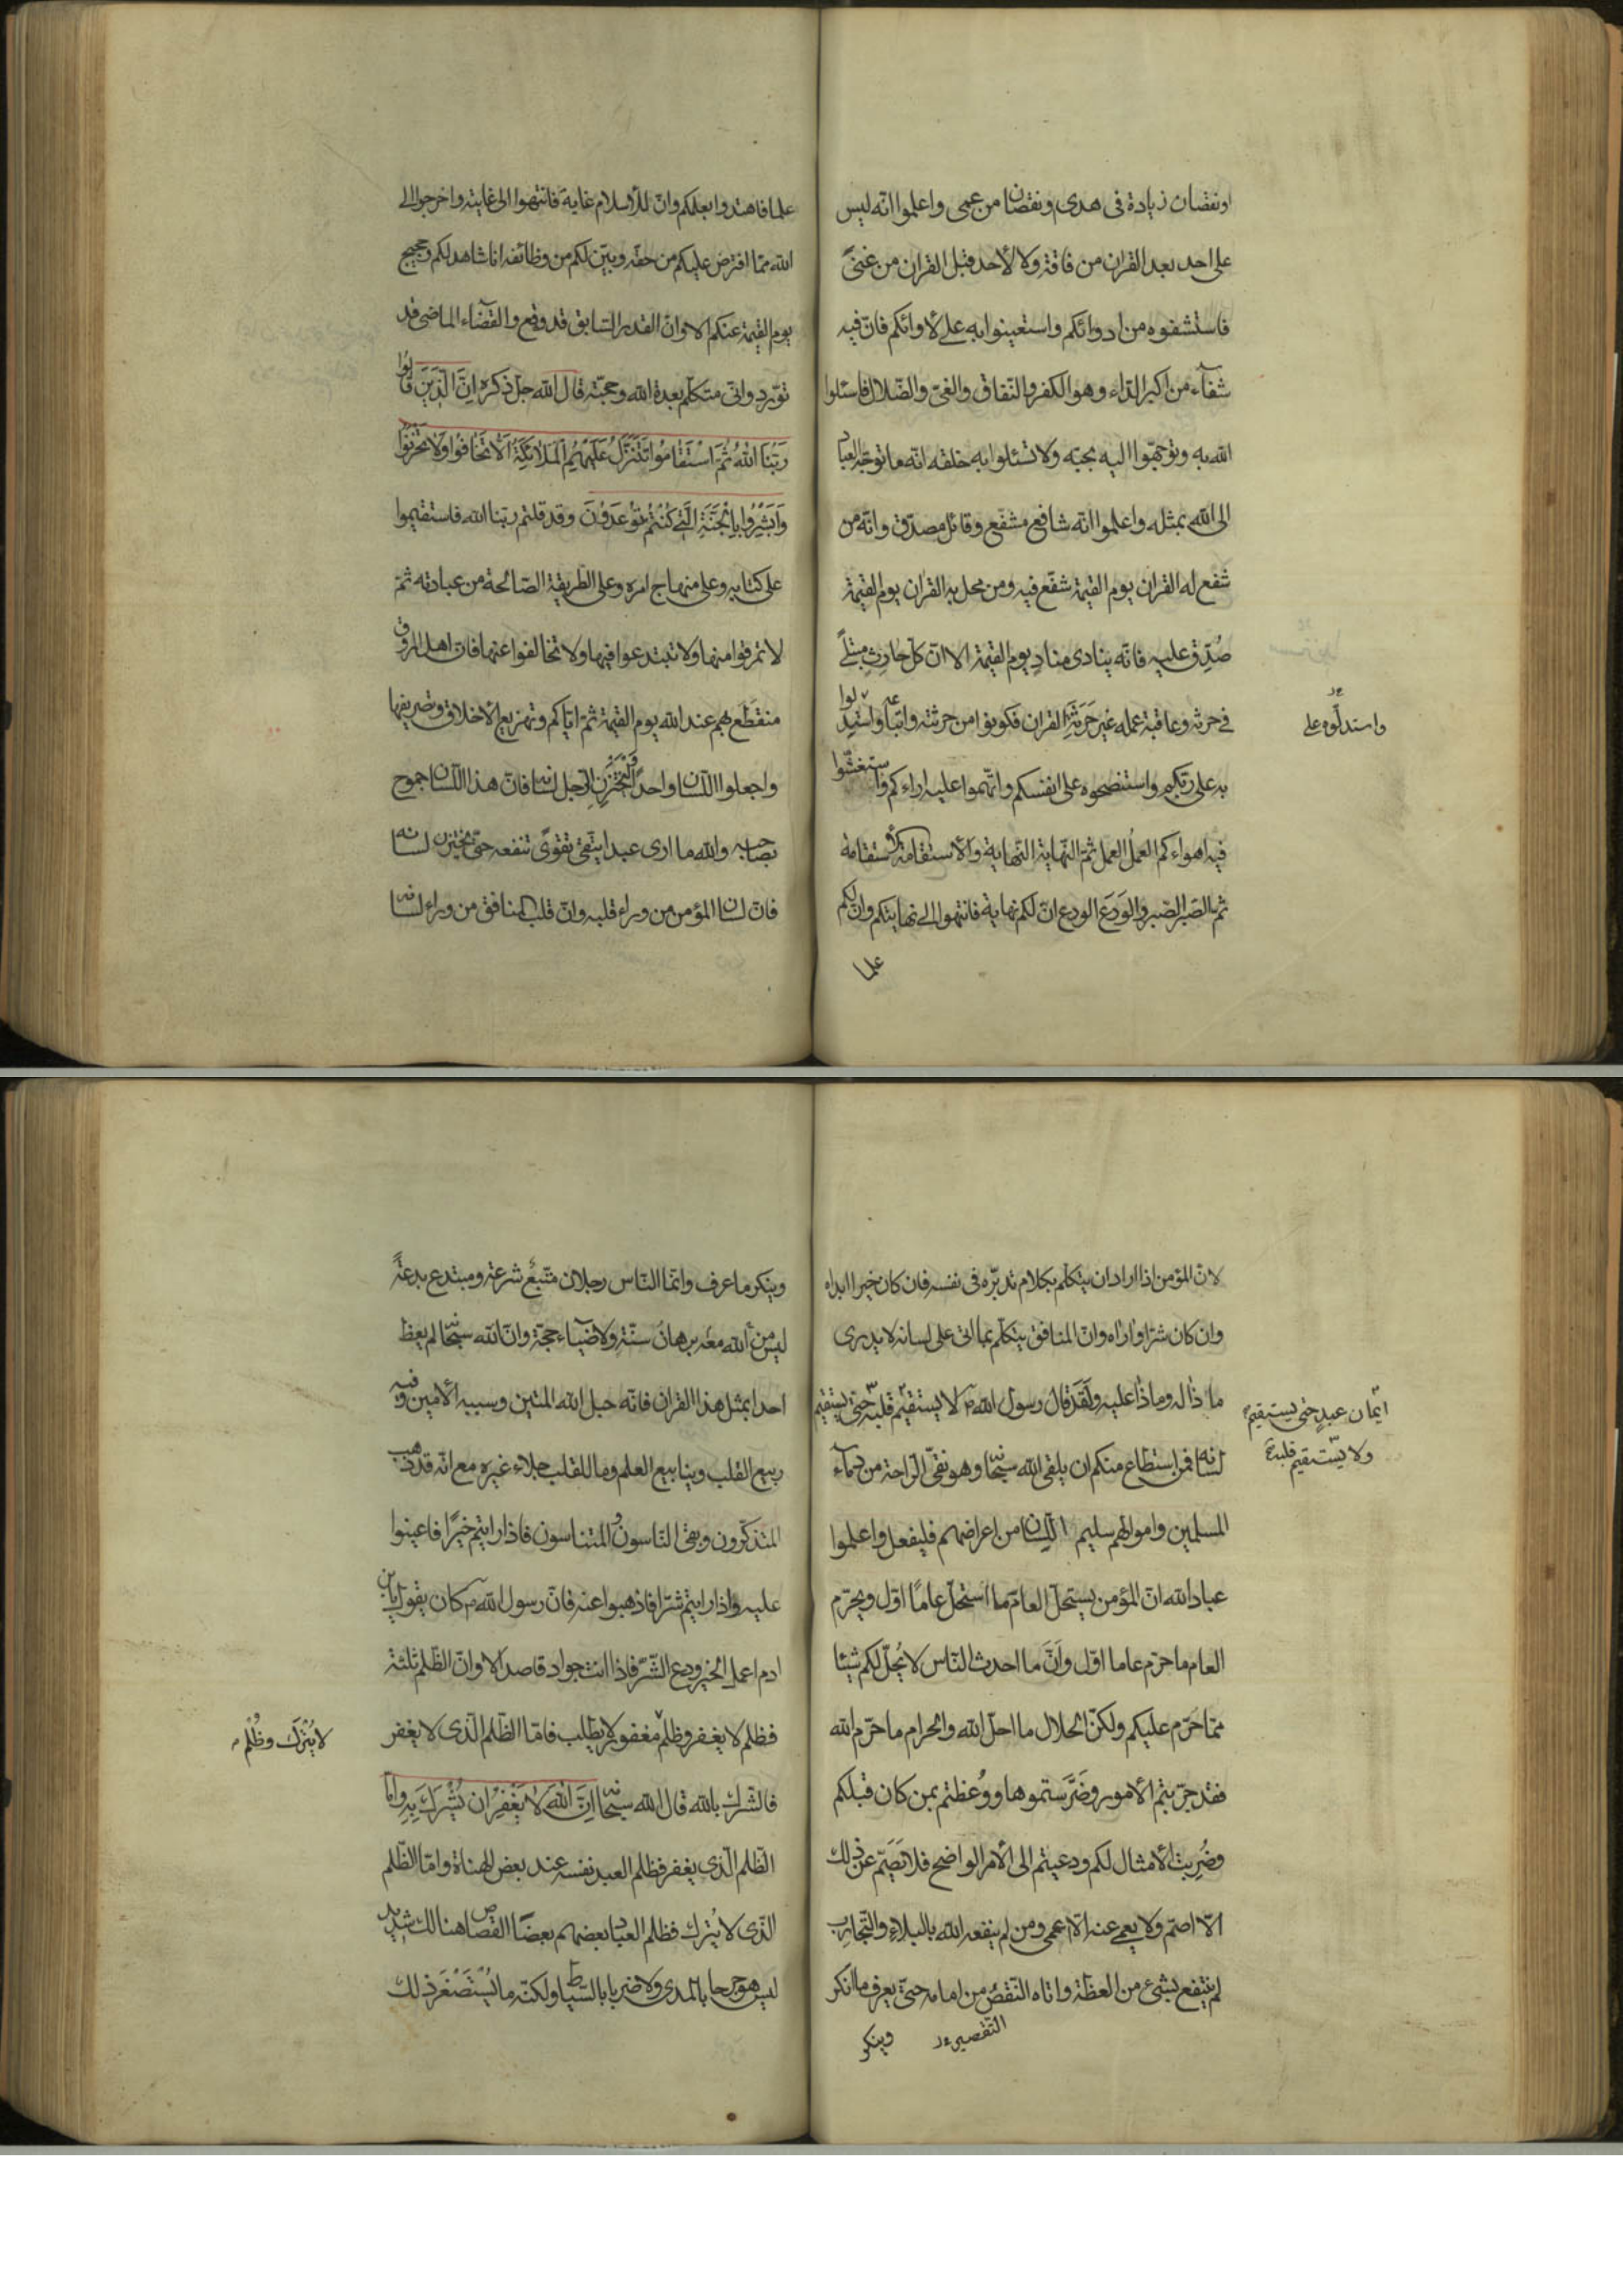 او نقصان زيادة فى هدى و نقصان من عمى واعلموا انه ليس
على احد بعد القران من فاقة ولا لأحد قبل القران من غنىً
فاستشفوه من ادوائكم واستعينوا به على لأوائكم فانّ فيه
شفآء من اكبر الدّاء وهو الكفر والنّفاق والغىّ والضّلال فاسئلوا
الله به وتوجّهوا اليه بحبّه ولا تسئلوا به خلقه انّه ما توجّه العباد
الى الله بمثله واعلموا انّه شافع مشفّع وقائل مصدّق وانّه من
شفع له القران يوم القيمة شفّع فيه ومن محل به القران يوم القيمة
صُدِّق عليه فانّه ينادى منادٍ يوم القيمة الا انّ كلّ حارثٍ مبتلىً
فى حرثه وعاقبة عمله غير حَرَثَةِ القران فكونوا من حرثته واتباعه واستدلوا
واستدلّوه على
به على ربّكم واستنصحوه على انفسكم واتّهموا عليه اراءكم واستغشّوا
فيه اهواءكم العمل العمل ثمّ النّهاية النّهاية والأستقامة الأستقامة
ثمّ الصّبر الصّبر والوَرَع الورع انّ لكم نهاية فانتهوا الى نهايتكم وانّ لكم
علما
علما فاهتدوا بعلمكم وانّ للأسلام غاية فانتهوا الى غايته واخرجوا الى
الله ممّا افترض عليكم من حقّه وبيّن لكم من وظائفه انا شاهد لكم وحجيج
يوم القيمة عنكم الا وانّ القدر السّابق قد وقع والقضآء الماضى قد
تورّد وانّى متكلّم بعدة الله وحجّته قال الله جلّ ذكره اِنَّ الَّذِيَن قَالُوا
رَبُّنَا اللهُ ثُمَّ اسْتَقَامُوا تَتَنَزَّلُ عَلَيْهِمُ الْمَلائِكَةُ اَلّا تَخَافُوا وَلا تَحْزَنُوا
وَاَبْشِرُوا بِالْجَنَّةِ الَّتِى كُنْتُمْ تُوْعَدُوْنَ وقد قلتم ربّنا الله فاستقيموا
على كتابه وعلى منهاج امره وعلى الطّريقة الصّالحة من عبادته ثمّ
لا تمرقوا منها ولا تبتدعوا فيها ولا تخالفوا عنها فانّ اهل المروق
منقطَع بهم عند الله يوم القيمة ثمّ ايّاكم وتهزيع الأخلاق وتصريفها
واجعلوا اللّسان واحدًا وليختزن الرّجل لسانه فانّ هذا اللّسان جموح
بصاحبه والله ما ارى عبدا يتّقى تقوىً تنفعه حتى يختزن لسانه
فانّ لسان المؤمن من وراء قلبه وانّ قلب المنافق من وراء لسانه
لانّ المؤمن اذا اراد ان يتكلّم بكلام تدبّره فى نفسه فان كان خيرا ابداه
وان كان شرّا واراه وانّ المنافق يتكلّم بما اتى على لسانه لا يدرى
ما ذا له وماذا عليه ولَقَدْ قال رسول الله ص لا يستقيم قلبه حتى يستقيم
ايمان عبدٍ حتى يستقيم
ولا يستقيم قلبه
لسانه فمن استطاع منكم ان يلقى الله سبحانه وهو نقىّ الرّاحة من دمآء
المسلمين واموالهم سليم اللّسان من اعراضهم فليفعل واعلموا
عباد الله انّ المؤمن يستحلّ العام ما استحلّ عامًا اوّل ويحرّم
العام ما حرّم عاما اوّل وَاَنَّ ما احدث النّاس لا يُحلّ لكم شيئا
ممّا حرّم عليكم ولكنّ الحلال ما احلّ الله والحرام ما حرّم الله
فقد جرّبتم الأمور وضَرَّستموها ووُعظتم بمن كان قبلكم
وضُرِبت الأمثال لكم ودعيتم الى الأمر الواضح فلا يَصَمّ عن ذلك
الّا اصمّ ولا يعمى عنه الّا اعمى ومن لم ينفعه الله بالبلاءِ والتّجارب
لم ينتفع بشئ من العظة واتاه النّقصُ من امامه حتّى يعرف ما انكر
التّقصير
وينكر
وينكر ما عرف وانّما النّاس رجلان متّبعٌ شرعة ومبتدع بدعةً
ليس من الله معه برهانُ سنّةٍ ولا ضيآء حجّة وانّ الله سبحانه لم يعظ
احدا بمثل هذا القران فانّه حبل الله المتين وسببه الأمين وفيه
ربيع القلب وينابيع العلم وما للقلب جلاء غيره مع انّه قد ذهب
المتذكّرون وبقى النّاسون والمتناسون فاذا رايتم خيرًا فاعينوا
عليه واذا رايتم شرّا فاذهبوا عنه فانّ رسول الله ص كان يقول يابن
ادم اعمل الخير ودع الشّرّ فاذا انت جواد قاصد الا وانّ الظّلم ثلثة
فظلم لا يغفر وظلم مغفور لا يطلب فامّا الظّلم الّذى لا يغفر
لا يُتْرَك وظُلْم
فالشّرك بالله قال الله سبحانه اِنَّ اللهَ لا يَغْفِرُ ان يُشْرَكَ بِهِ وامّا
الظّلم الّذى يغفر فظلم العبد نفسه عند بعض الهناة وامّا الظّلم
الّذى لا يُترك فظلم العباد بعضهم بعضًا القصاص هنالك شديد
ليس هو جرحا بالمدى ولا ضربا بالسّياط ولكنّه ما يُسْتَصْغَرُ ذلك